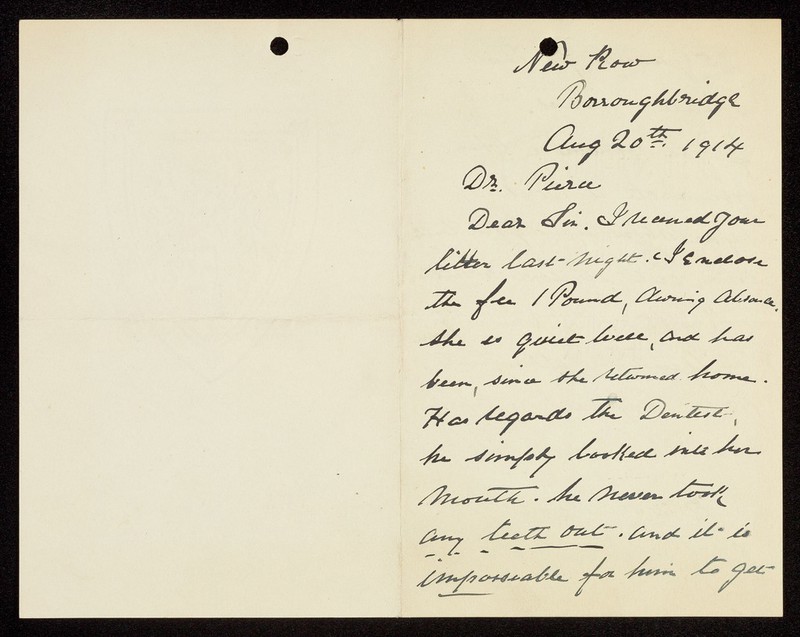 New Row
Borroughbridge
Aug 20th 1914
Dr. Pierce
Dear Sir. I received your
litter last night. & I Enclose
the fee 1 Pound, during absence,
she is quiet well, and has
been, since she returned home.
Has regards the Dentest,
he simply looked into her
mouth. he never took
any teeth out. and it is
impossiable for him to get